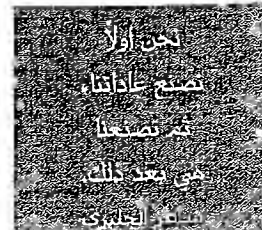 نحن أولاً
نصنع عاداتنا،
ثم تصنعنا
هي بعد ذلك.
شاعر إنجليزي